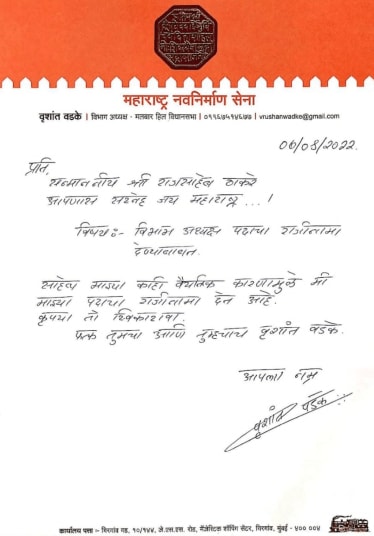 महाराष्ट्र नवनिर्माण सेना
वृशांत वडके | विभाग अध्यक्ष - मलबार हिल विधानसभा | ०९१६७५१५६७७ | vrushanwadke@gmail.com
०७/०४/२०२२
प्रति,
सन्माननीय श्री राजसाहेब ठाकरे
आपणास सस्नेह जय महाराष्ट्र ...!
विषय:- विभाग अध्यक्ष पदाचा राजीनामा
देण्याबाबत.
साहेब माझ्या काही वैयक्तिक कारणामुळे मी
माझ्या पदाचा राजीनामा देत आहे.
कृपया तो स्विकारावा.
फक्त तुमचा आणि तुम्हचाच वृशांत वडके.
आपला नम्र
वृशांत वडके
कार्यालय पत्ता :- गिरगांव गड, १०/१४४, जे.एस.एस. रोड, मॅजेस्टिक शॉपिंग सेंटर, गिरगांव, मुंबई - ४०० ००४